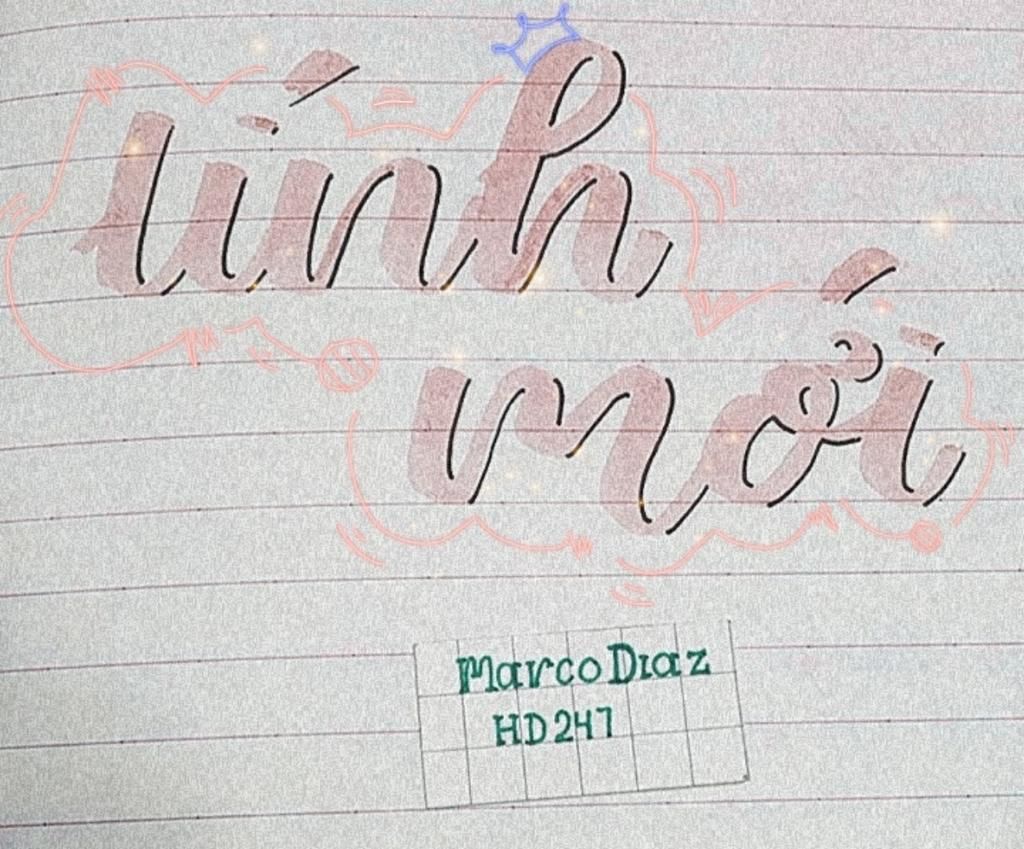 tính
mới
Marco Diaz
HD247